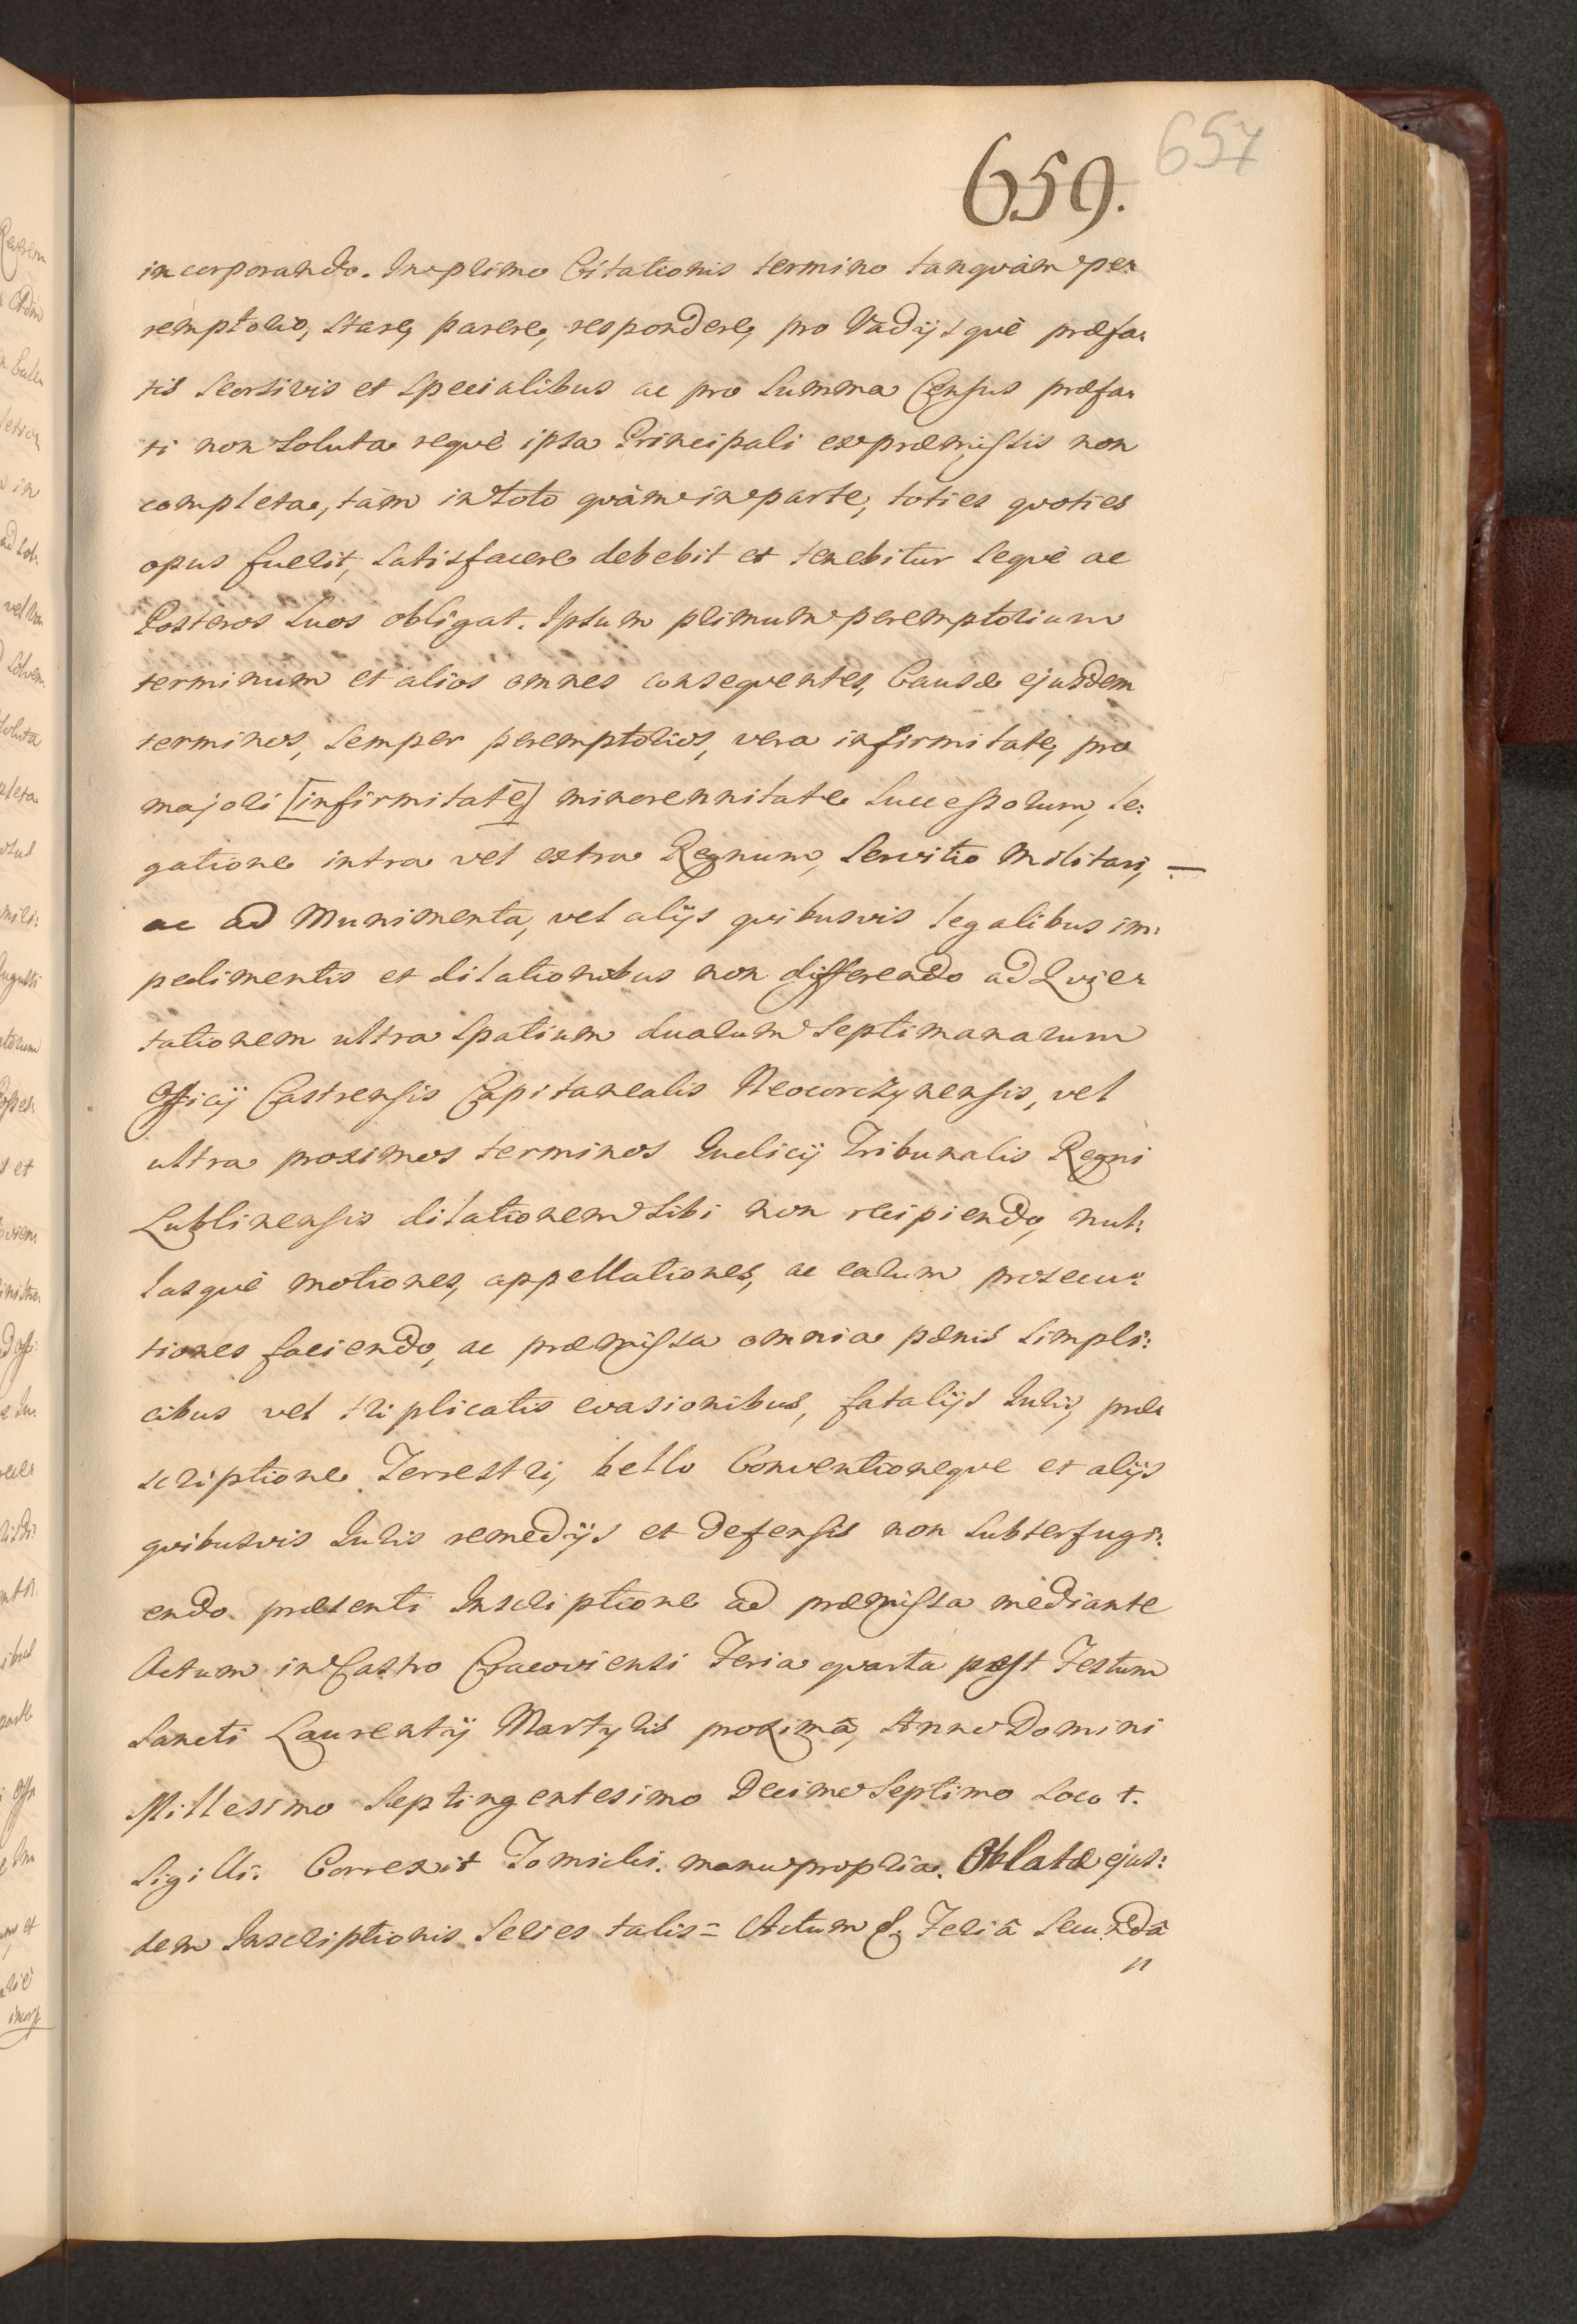 659. 657
incorporando. In primo Citationis termino tanquàm pe-
remptorio, stare, parere, respondere, pro Vadijsquè præfa-
tis Seorsivis et Specialibus ac pro Summa Census præfa-
ti non Soluta requè ipsa Principali ex præmissis non
completa, tàm in toto quàm in parte, toties quoties
opus fuerit, Satisfacere debebit et tenebitur Sequè ac
Posteros Suos obligat. Ipsum primum peremptorium
terminum et alios omnes consequentes, Causæ ejusdem
terminos, Semper peremptorios, vera infirmitate, pro
majori [infirmitate] minorennitate Successorum, Le:
gatione intra vel extra Regnum, Servitio Militari, —
ac ad Munimenta, vel alijs quibusvis legalibus im:
pedimentis et dilationibus non differendo ad
tationem ultra Spatium duarum Septimanarum
Officij Castrensis Capitanealis Neocorczynensis, vel
ultra proximos terminos Iudicij Tribunalis Regni
Lublinensis dilationem Sibi non recipiendo, nul:
lasquè motiones, appellationes, ac earum prosecu:
tiones faciendo, ac præmissa omnia pænis Simpli:
cibus vel triplicatis evasionibus, fatalijs Iuris, præ-
scriptione Terrestri, bello Conventioneque et alijs
quibusvis Iuris remedijs et defensis non Subterfugi:
endo præsenti Inscriptione ad præmissa mediante
Actum in Castro Cracoviensi Feria quarta post Festum
Sancti Laurentij Martyris proximâ, Anno Domini
Millesimo Septingentesimo Decimo Septimo Loco t.
Sigilli. Correxit Tomicki. manu propria. Oblatæ ejus:
dem Inscriptionis Series talis = Actum & Feriâ Secundâ
"